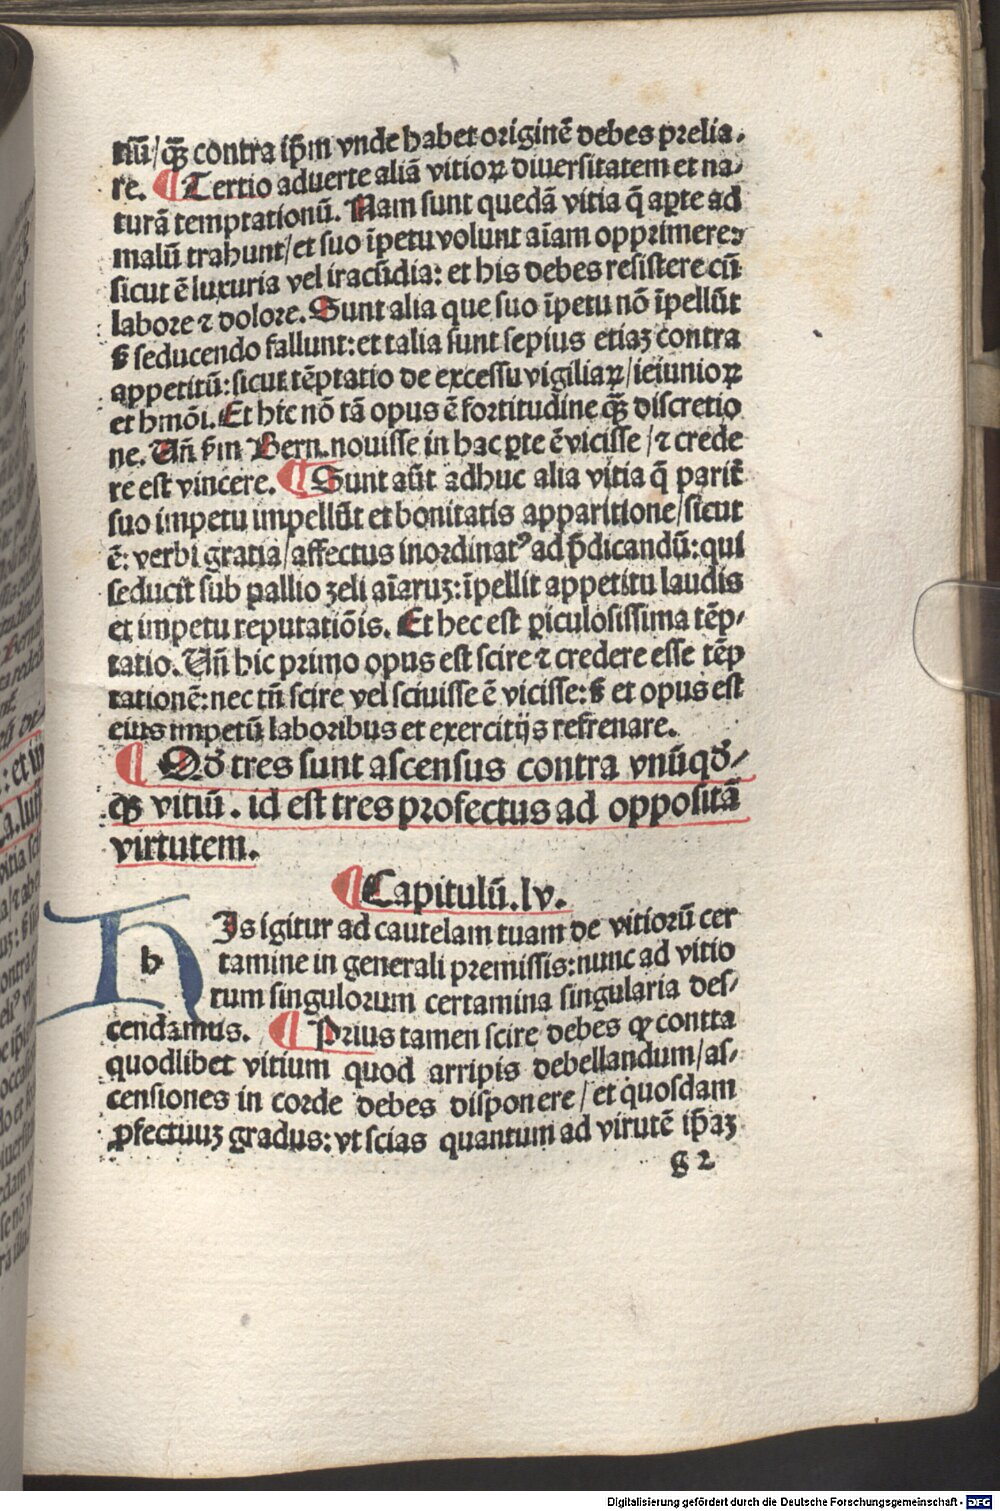 tiũ/q̃ꝫ contra ip̃m vnde habet originẽ debes prelia-
re. ¶ Tertio aduerte aliã vitioꝝ diuersitatem et na-
turã temptationũ. Nam sunt quedã vitia q̃ aꝑte ad
malũ trahunt/et suo ĩpetu volunt aĩam opprimere:
sicut ẽ luxuria vel iracũdia: et his debes resistere cũ
labore ⁊ dolore. Sunt alia que suo ĩpetu nõ ĩpellũt
s̃ seducendo fallunt: et talia sunt sepius etiaꝫ contra
appetitũ: sicut tẽptatio de excessu vigiliaꝝ/ieiunioꝝ
et hmõi. Et hic nõ tã opus ẽ fortitudine q̃ꝫ discretio
ne. Vñ s̃m Bern. nouisse in hac ꝑte ẽ vicisse/⁊ crede
re est vincere. ¶ Sunt aũt adhuc alia vitia q̃ parit̃
suo impetu impellũt et bonitatis apparitione/sicut
ẽ: verbi gratia/affectus inordinatꝰ ad p̃dicandũ: qui
seducit sub pallio zeli aĩaruꝫ: ĩpellit appetitu laudis
et impetu reputatiõis. Et hec est ꝑiculosissima tẽp-
tatio. Vñ hic primo opus est scire ⁊ credere esse tẽp
tationẽ: nec tñ scire vel sciuisse ẽ vicisse: s̃ et opus est
eius impetũ laboribus et exercitijs refrenare.
¶ Qõ tres sunt ascensus contra vnũqõ-
qꝫ vitiũ. id est tres profectus ad oppositã
virtutem.
¶ Capitulũ. lv.
h Is igitur ad cautelam tuam de vitiorũ cer
tamine in generali premissis: nunc ad vitio
rum singulorum certamina singularia des-
cendamus. ¶ Prius tamen scire debes ꝙ contra
quodlibet vitium quod arripis debellandum/as-
censiones in corde debes disponere/et quosdam
ꝓfectuuꝫ gradus: vt scias quantum ad virutẽ ip̃aꝫ
g 2
Digitalisierung gefördert durch die Deutsche Forschungsgemeinschaft - DFG